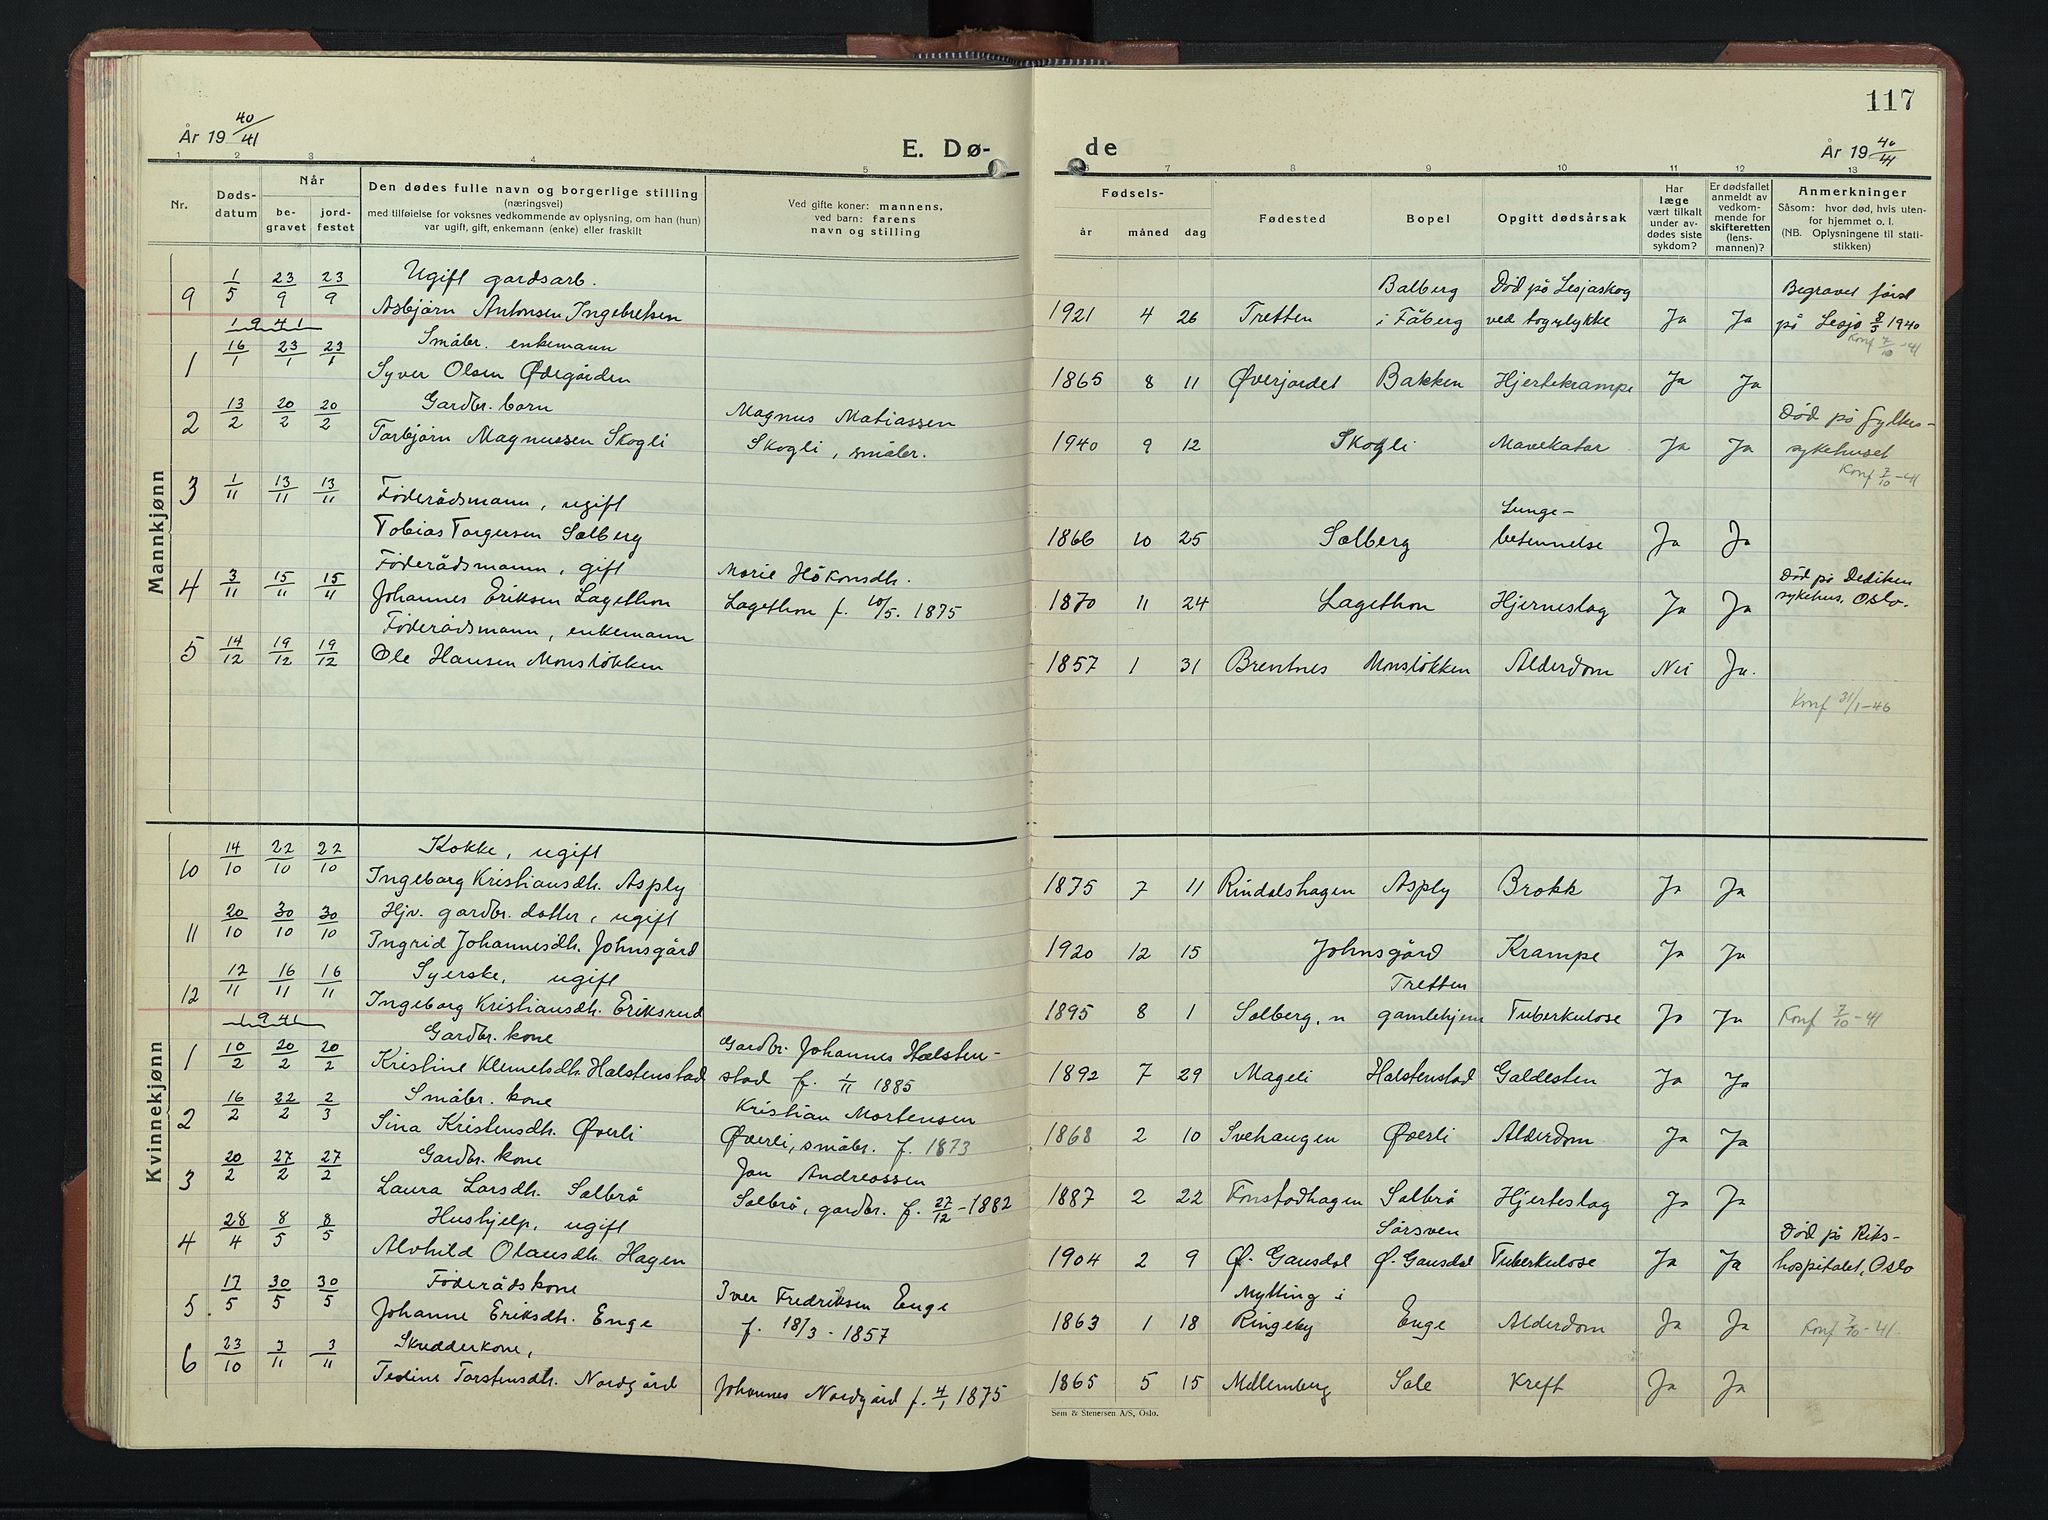 117
År 19 40/41
E. Dø-
de
År 19 40/41
1 2 3 4 5 6 7 8 9 10 11 12 13
Nr.
Døds-
datum
Når
be-
gravet
jord-
festet
Den dødes fulle navn og borgerlige stilling
(næringsvei)
med tilføielse for voksnes vedkommende av oplysning, om han (hun)
var ugift, gift, enkemann (enke) eller fraskilt
Ved gifte koner: mannens,
ved barn: farens
navn og stilling
Fødsels-
år måned dag
Fødested
Bopel
Opgitt dødsårsak
Har
læge
vært tilkalt
under av-
dødes siste
sykdom?
Er dødsfallet
anmeldt av
vedkom-
mende for
skifteretten
(lens-
mannen)?
Anmerkninger
Såsom: hvor død, hvis uten-
for hjemmet o. l.
(NB. Oplysningene til stati-
stikken)
Mannkjønn
Ugift gardsarb. Balberg Død på Lesjaskog Begravet først
9 1/5 23/9 23/9 Asbjørn Antonsen Ingebretsen 1921 4 26 Tretten i Fåberg ved togulykke Ja Ja på Lesja 8/5 1940
1941
Konf 7/10-41
Småbr. enkemann
1 16/1 23/1 23/1 Syver Olsen Ødegården 1865 8 11 Øverjordet Bakken Hjertekrampe Ja Ja
Gardbr. barn Magnus Matiassen Død på fylkes-
2 13/2 20/2 20/2 Torbjørn Magnussen Skogli Skogli, småbr. 1940 9 12 Skogli Mavekatar Ja Ja sykehuset
Konf 7/10-41
Føderådsmann, ugift Lunge-
3 1/11 13/11 13/11 Tobias Torgersen Solberg 1866 10 25 Solberg betennelse Ja Ja
Føderådsmann, gift Marie Håkonsdh. Død på Dediken
4 3/11 15/11 15/11 Johannes Eriksen Lagethon Lagethon f. 10/5. 1875 1870 11 24 Lagethon Hjerneslag Ja Ja sykehus, Oslo.
Føderådsmann, enkemann
5 14/12 19/12 19/12 Ole Hansen Monsløkken 1857 1 31 Brentnes Monsløkken Alderdom Nei Ja.
Konf 31/1-46
Kvinnekjønn
Kokke, ugift
10 14/10 22/10 22/10 Ingeborg Kristiansdh. Asply 1875 7 11 Rindalshagen Asply Brokk Ja Ja
Hjv. gardbr. datter, ugift
11 20/10 30/10 30/10 Ingrid Johannesdh. Johnsgård 1920 12 15 Johnsgård Krampe Ja Ja
Syerske, ugift Tretten
12 12/11 16/11 16/11 Ingeborg Kristiansdh. Eriksrud 1895 8 1 Solberg, n gamlehjem Tuberkulose Ja Ja Konf 7/10-41
1941
Gardbr. kone Gardbr. Johannes Halsten-
1 10/2 20/2 20/2 Kristine Klemetsdh. Halstenstad stad f. 1/11 1885 1892 7 29 Mageli Halstenstad Galdesten Ja Ja
Småbr. kone Kristian Mortensen
2 16/2 22/2 2/3 Sina Kristensdh. Øverli Øverli, småbr. f. 1873 1868 2 10 Svehaugen Øverli Alderdom Ja Ja
Gardbr. kone Jan Andreassen
3 20/2 27/2 27/2 Laura Larsdh. Solbrå Solbrå, gardbr. f. 27/12-1882 1887 2 22 Fonstadhagen Solbrå Hjerteslag Ja Ja
Hushjelp, ugift Sørsven Død på Riks-
4 28/4 8/5 8/5 Alvhild Olausdh. Hagen 1904 2 9 Ø. Gausdal Ø. Gausdal Tuberkulose Ja Ja hospitalet, Oslo
Føderådskone Iver Fredriksen Enge Mytting i
5. 17/5 30/5 30/5 Johanne Eriksdh. Enge f. 18/3-1857 1863 1 18 Ringeby Enge Alderdom Ja Ja Konf 7/10-41.
Skredderkone,
6 23/10 3/11 3/11 Tedine Torstensdh. Nordgård Johannes Nordgård f. 4/1 1875 1865 5 15 Sole Kreft Ja Ja
Sem & Stenersen A/S, Oslo.